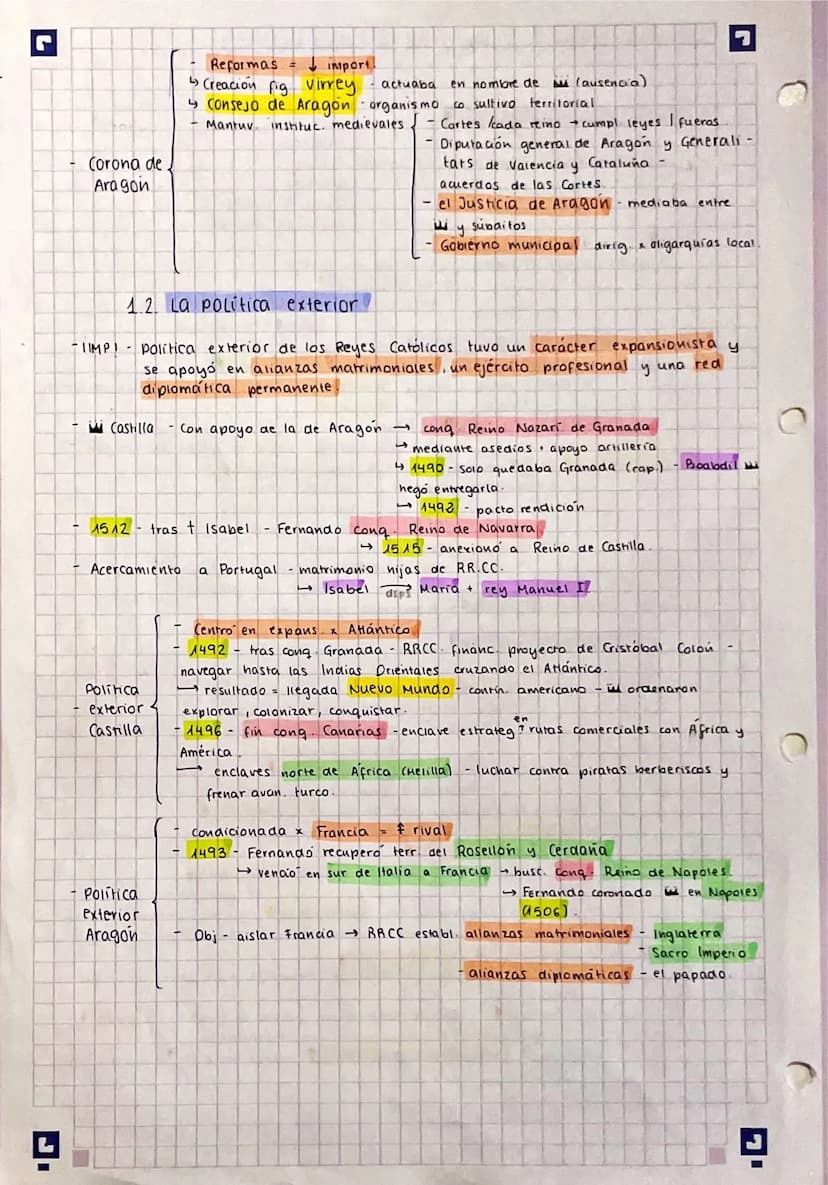 - Reformas = ↓ import.
↳ Creación fig. Virrey - actuaba en nombre de 👑 (ausencia)
↳ Consejo de Aragón - organismo co sultivo territorial
- Mantuv. instituc. medievales { - Cortes /cada reino → cumpl. leyes / fueros
- Diputación general de Aragón y Generali -
tats de Valencia y Cataluña -
acuerdos de las Cortes.
- Corona de
Aragón
- el Justicia de Aragón - mediaba entre
👑 y súbditos
- Gobierno municipal dirig. x oligarquías local.
1.2. La política exterior
- ¡IMP! - política exterior de los Reyes Católicos tuvo un carácter expansionista y
se apoyó en alianzas matrimoniales, un ejército profesional y una red
diplomática permanente.
- 👑 Castilla - con apoyo de la de Aragón → conq. Reino Nazarí de Granada
→ mediante asedios + apoyo artillería
↳ 1490 - solo quedaba Granada (cap.) - Boabdil 👑
negó entregarla.
↳ 1492 - pacto rendición
- 1512 - tras † Isabel - Fernando conq. Reino de Navarra
→ 1515 - anexionó a Reino de Castilla.
- Acercamiento a Portugal - matrimonio hijas de RR.CC.
↳ Isabel → dsps María + rey Manuel I
- Política
exterior
Castilla
- Centró en expans. x Atlántico
- 1492 - tras conq. Granada - RRCC. financ. proyecto de Cristóbal Colón -
navegar hasta las Indias Orientales cruzando el Atlántico.
→ resultado = llegada Nuevo Mundo - contin. americano - 👑 ordenaron
explorar, colonizar, conquistar.
- 1496 - fin conq. Canarias - enclave estrateg. en rutas comerciales con África y
América.
→ enclaves norte de África (Melilla) - luchar contra piratas berberiscos y
frenar avan. turco.
- Política
exterior
Aragón
- condicionada x Francia = ↑ rival
- 1493 - Fernando recuperó terr. del Rosellón y Cerdaña
↳ venció en sur de Italia a Francia → busc. conq. Reino de Nápoles.
→ Fernando coronado 👑 en Nápoles
(1506).
- Obj - aislar Francia → RRCC establ. alianzas matrimoniales - Inglaterra
- Sacro Imperio
- alianzas diplomáticas - el papado.